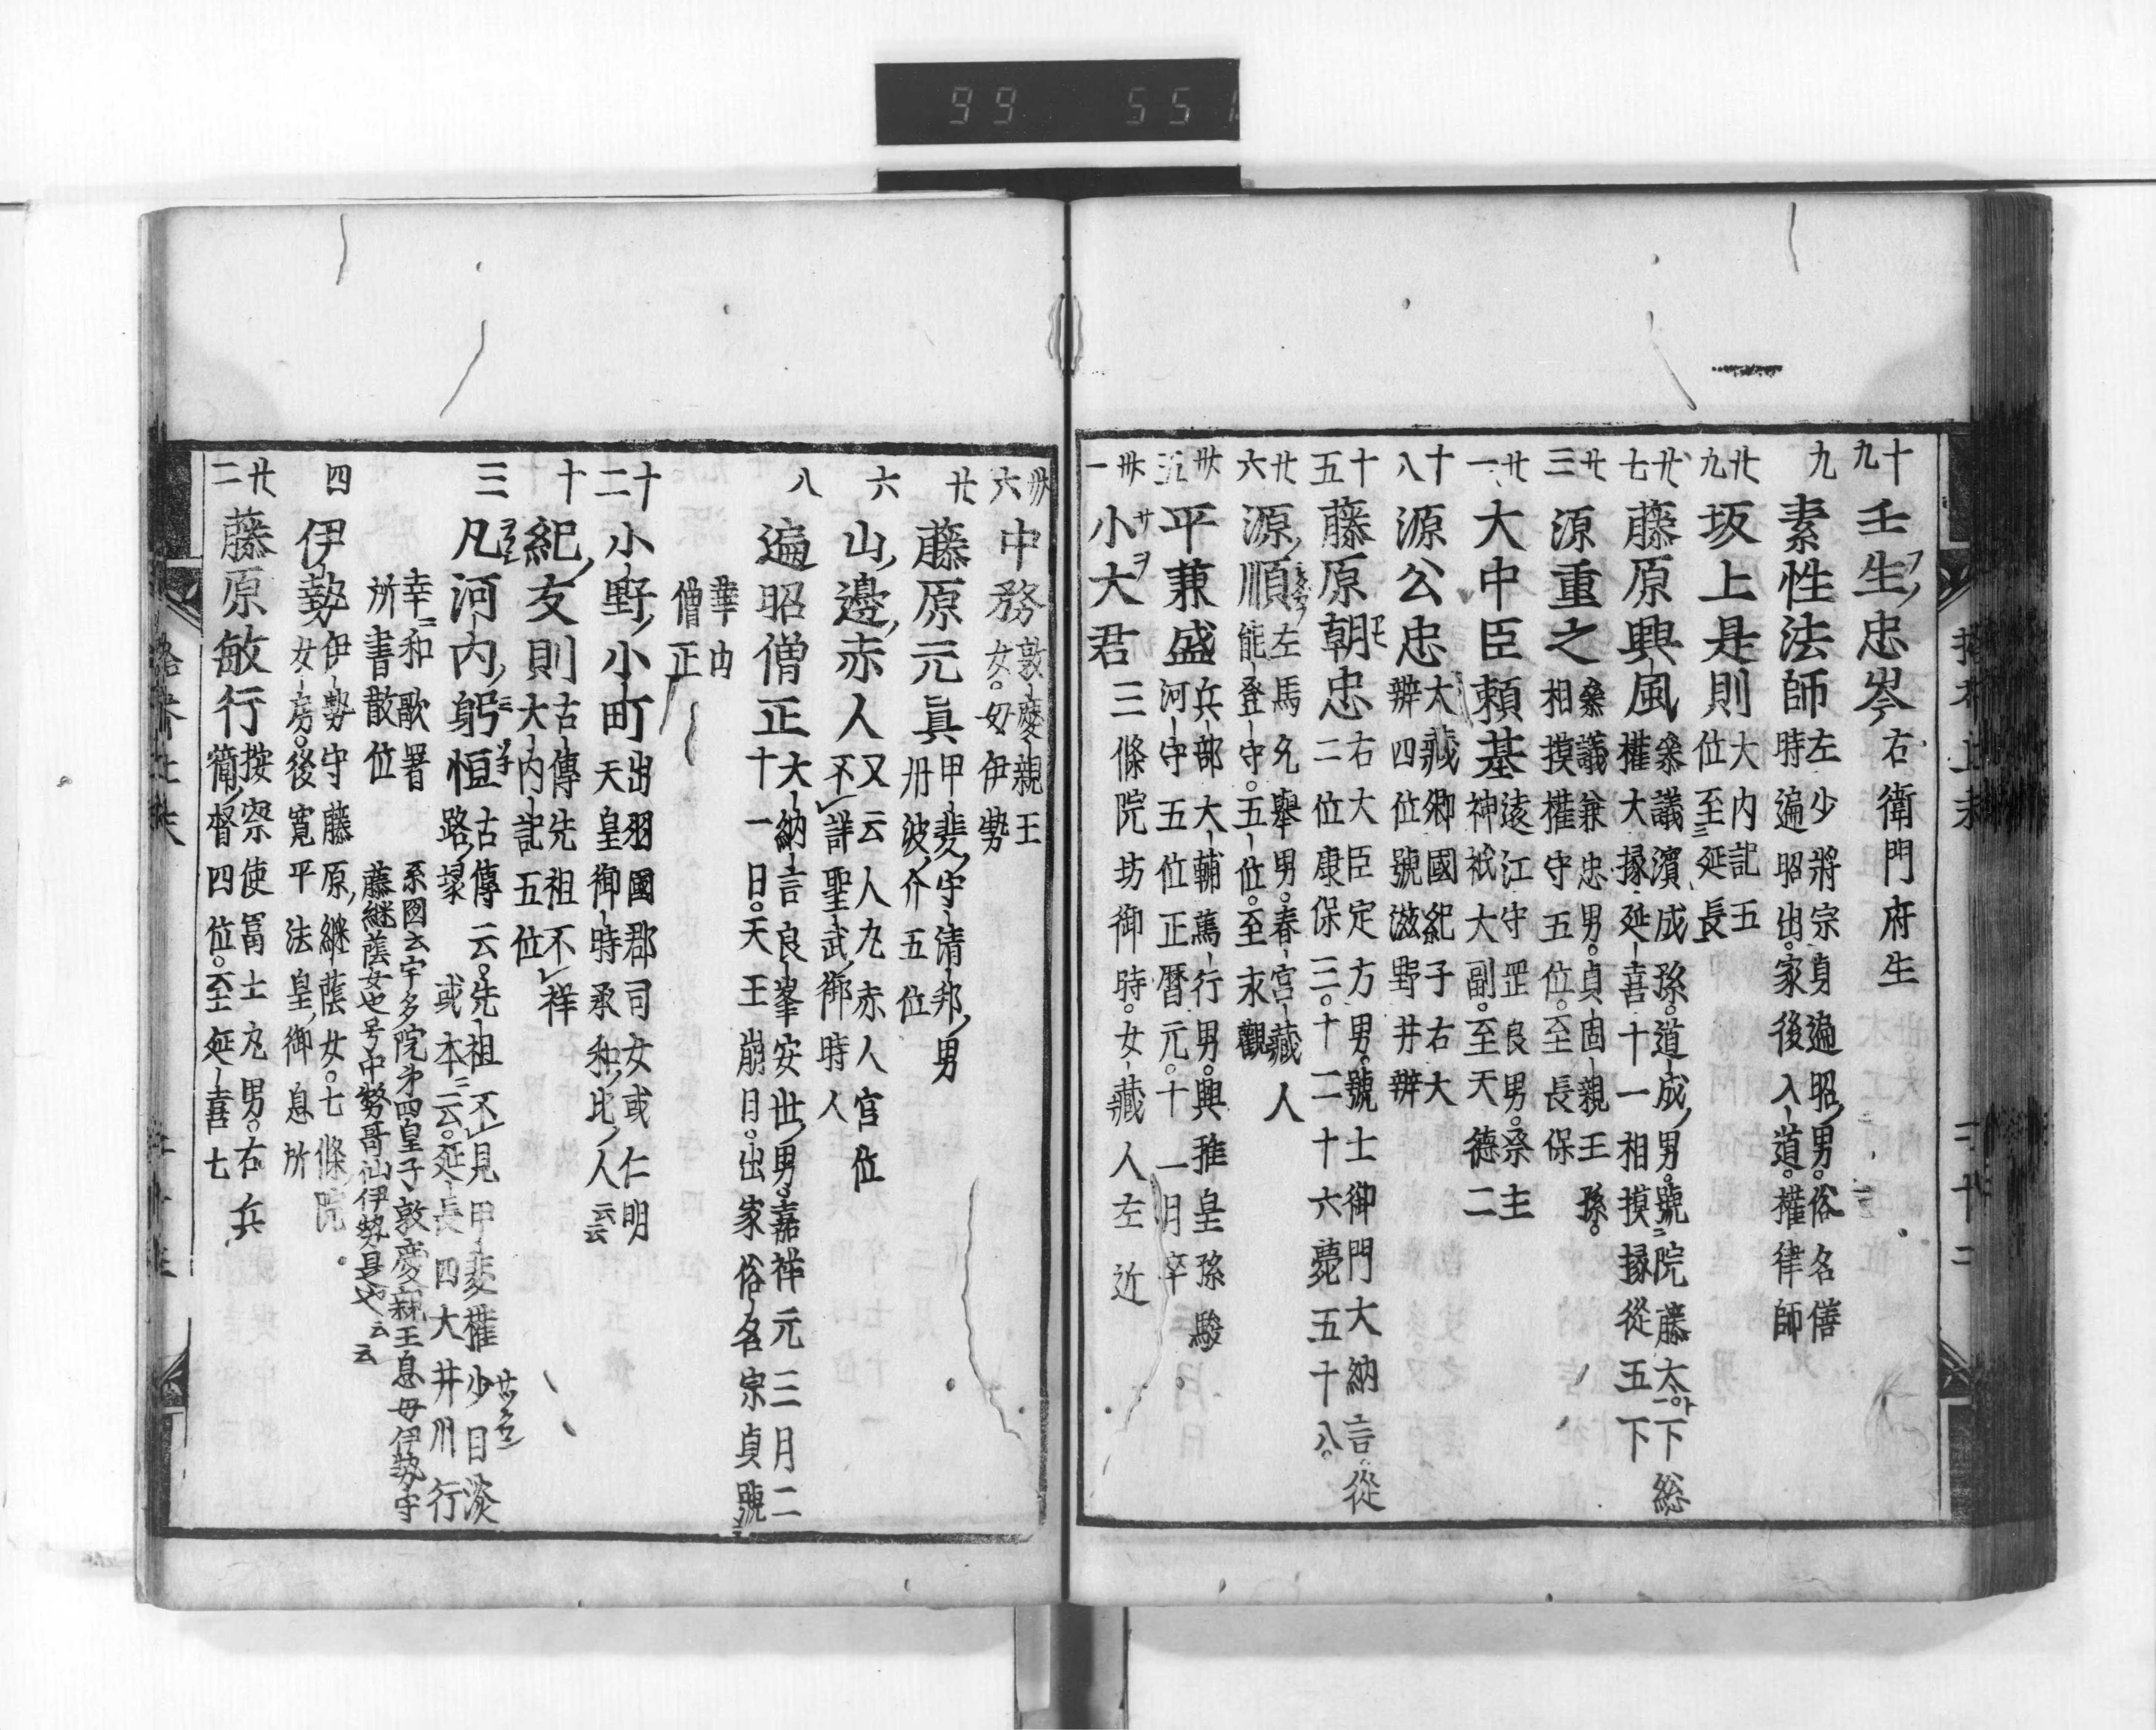 99 551
拾芥上末
十九 壬生忠岑 右衛門府生
九 素性法師 左少將宗貞遍昭男。俗名僐
時遍昭出家後入道。權律師
廿九 坂上是則 大内記五
位至延長
廿七 藤原興風 叅議濱成孫。道成男。號院藤太下総
權大掾延喜十一相摸掾從五下
廿三 源重之 叅議兼忠男。貞固親王孫。
相摸權守五位。至長保
廿一 大中臣頼基 遠江守罡良男。祭主
神祇大副。至天德二
十八 源公忠 大藏卿國紀子右大
辨四位號滋野井辨
十五 藤原朝忠 右大臣定方男。號士御門大納言。從
二位康保三。十二十六薨五十八。
廿六 源順 左馬允擧男。春宮藏人
能登守。五位。至永觀
卅五 平兼盛 兵部大輔萬行男。興雅皇孫駿
河守五位正暦元。十一月卒。
卅一 小大君 三條院坊御時。女藏人左近
卅六 中務 敦慶親王
女。母伊勢
廿 藤原元眞 甲斐守清邦男
丹波介五位
六 山邊赤人 又云人丸赤人官位
不詳聖武御時人
八 遍昭僧正 大納言良峯安世男。嘉祥元三月二
十一日。天王崩月。出家俗名宗貞號
華山
僧正
十二 小野小町 出羽國郡司女或仁明
天皇御時承和比人云云
十 紀友則 古傳先祖不祥
大内記五位
三 凡河内躬恒 古傳云。先祖不見甲斐權少目淡
路掾 或本云。延長四大井川行
幸和歌署
所書散位
系図云宇多院第四皇子敦慶親王息母伊勢守
藤継蔭女也号中務哥仙伊勢是也云云
四 伊勢 伊勢守藤原継蔭女。七條院
女房。後寛平法皇御息所
廿二 藤原敏行 按察使冨士丸男。右兵
衛督四位。至延喜七